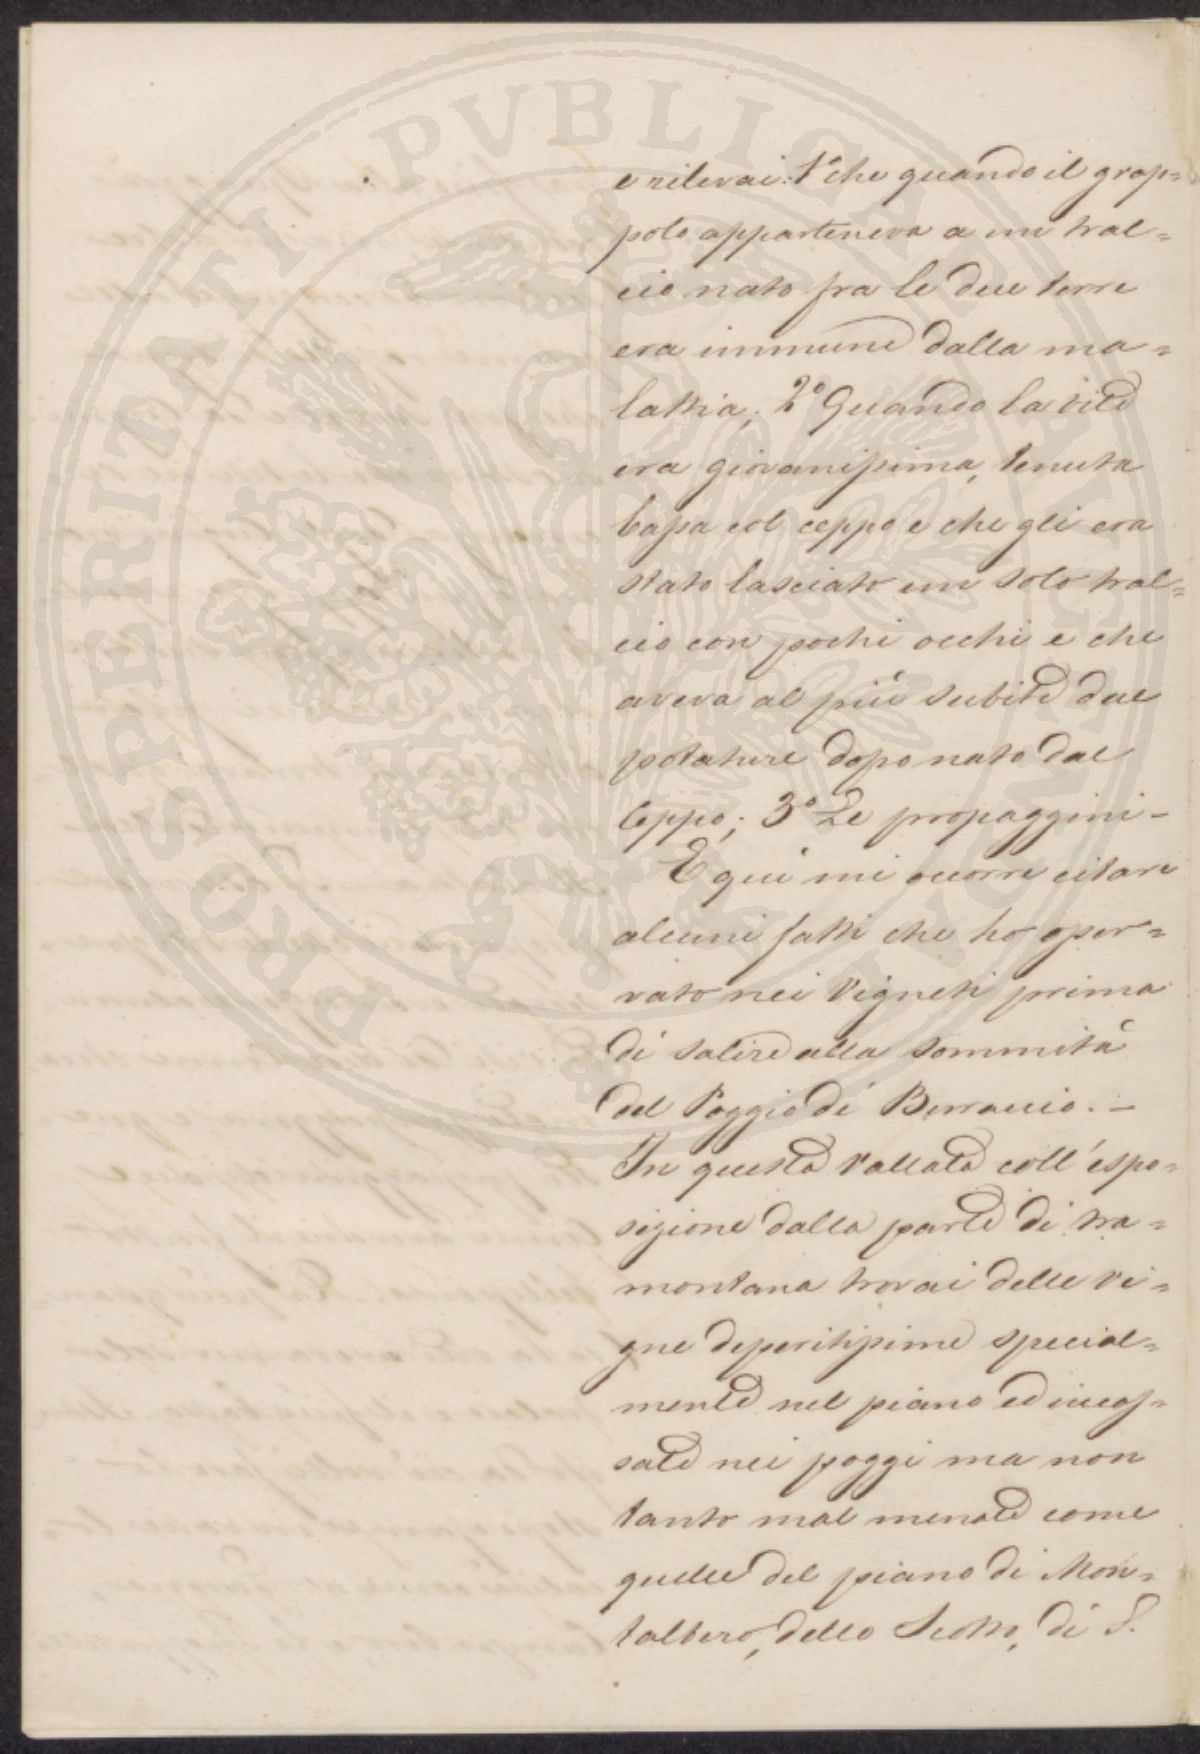 PROSPERITATI PVBLICAE
e rilevai: 1° che quando il grap=
polo apparteneva a un tral=
cio nato fra le due terre
era immune dalla ma=
lattia; 2° Quando la vite
era giovanissima, tenuta
bassa col ceppo e che gli era
stato lasciato un solo tral=
cio con pochi occhi e che
aveva al più subite due
potature dopo nato dal
Ceppo; 3° Le propaggini –
E quì mi occorre citare
alcuni fatti che ho osser=
vato nei Vigneti prima
di salire alla sommità
del Poggio di Borraccio. –
In questa Vallata coll'espo=
sizione dalla parte di tra=
montana trovai delle vi=
gne deperitissime special=
mente nel piano ed incas=
sate nei poggi ma non
tanto mal menate come
quelle del piano di Mon=
talbero, dello Scotto, di S.